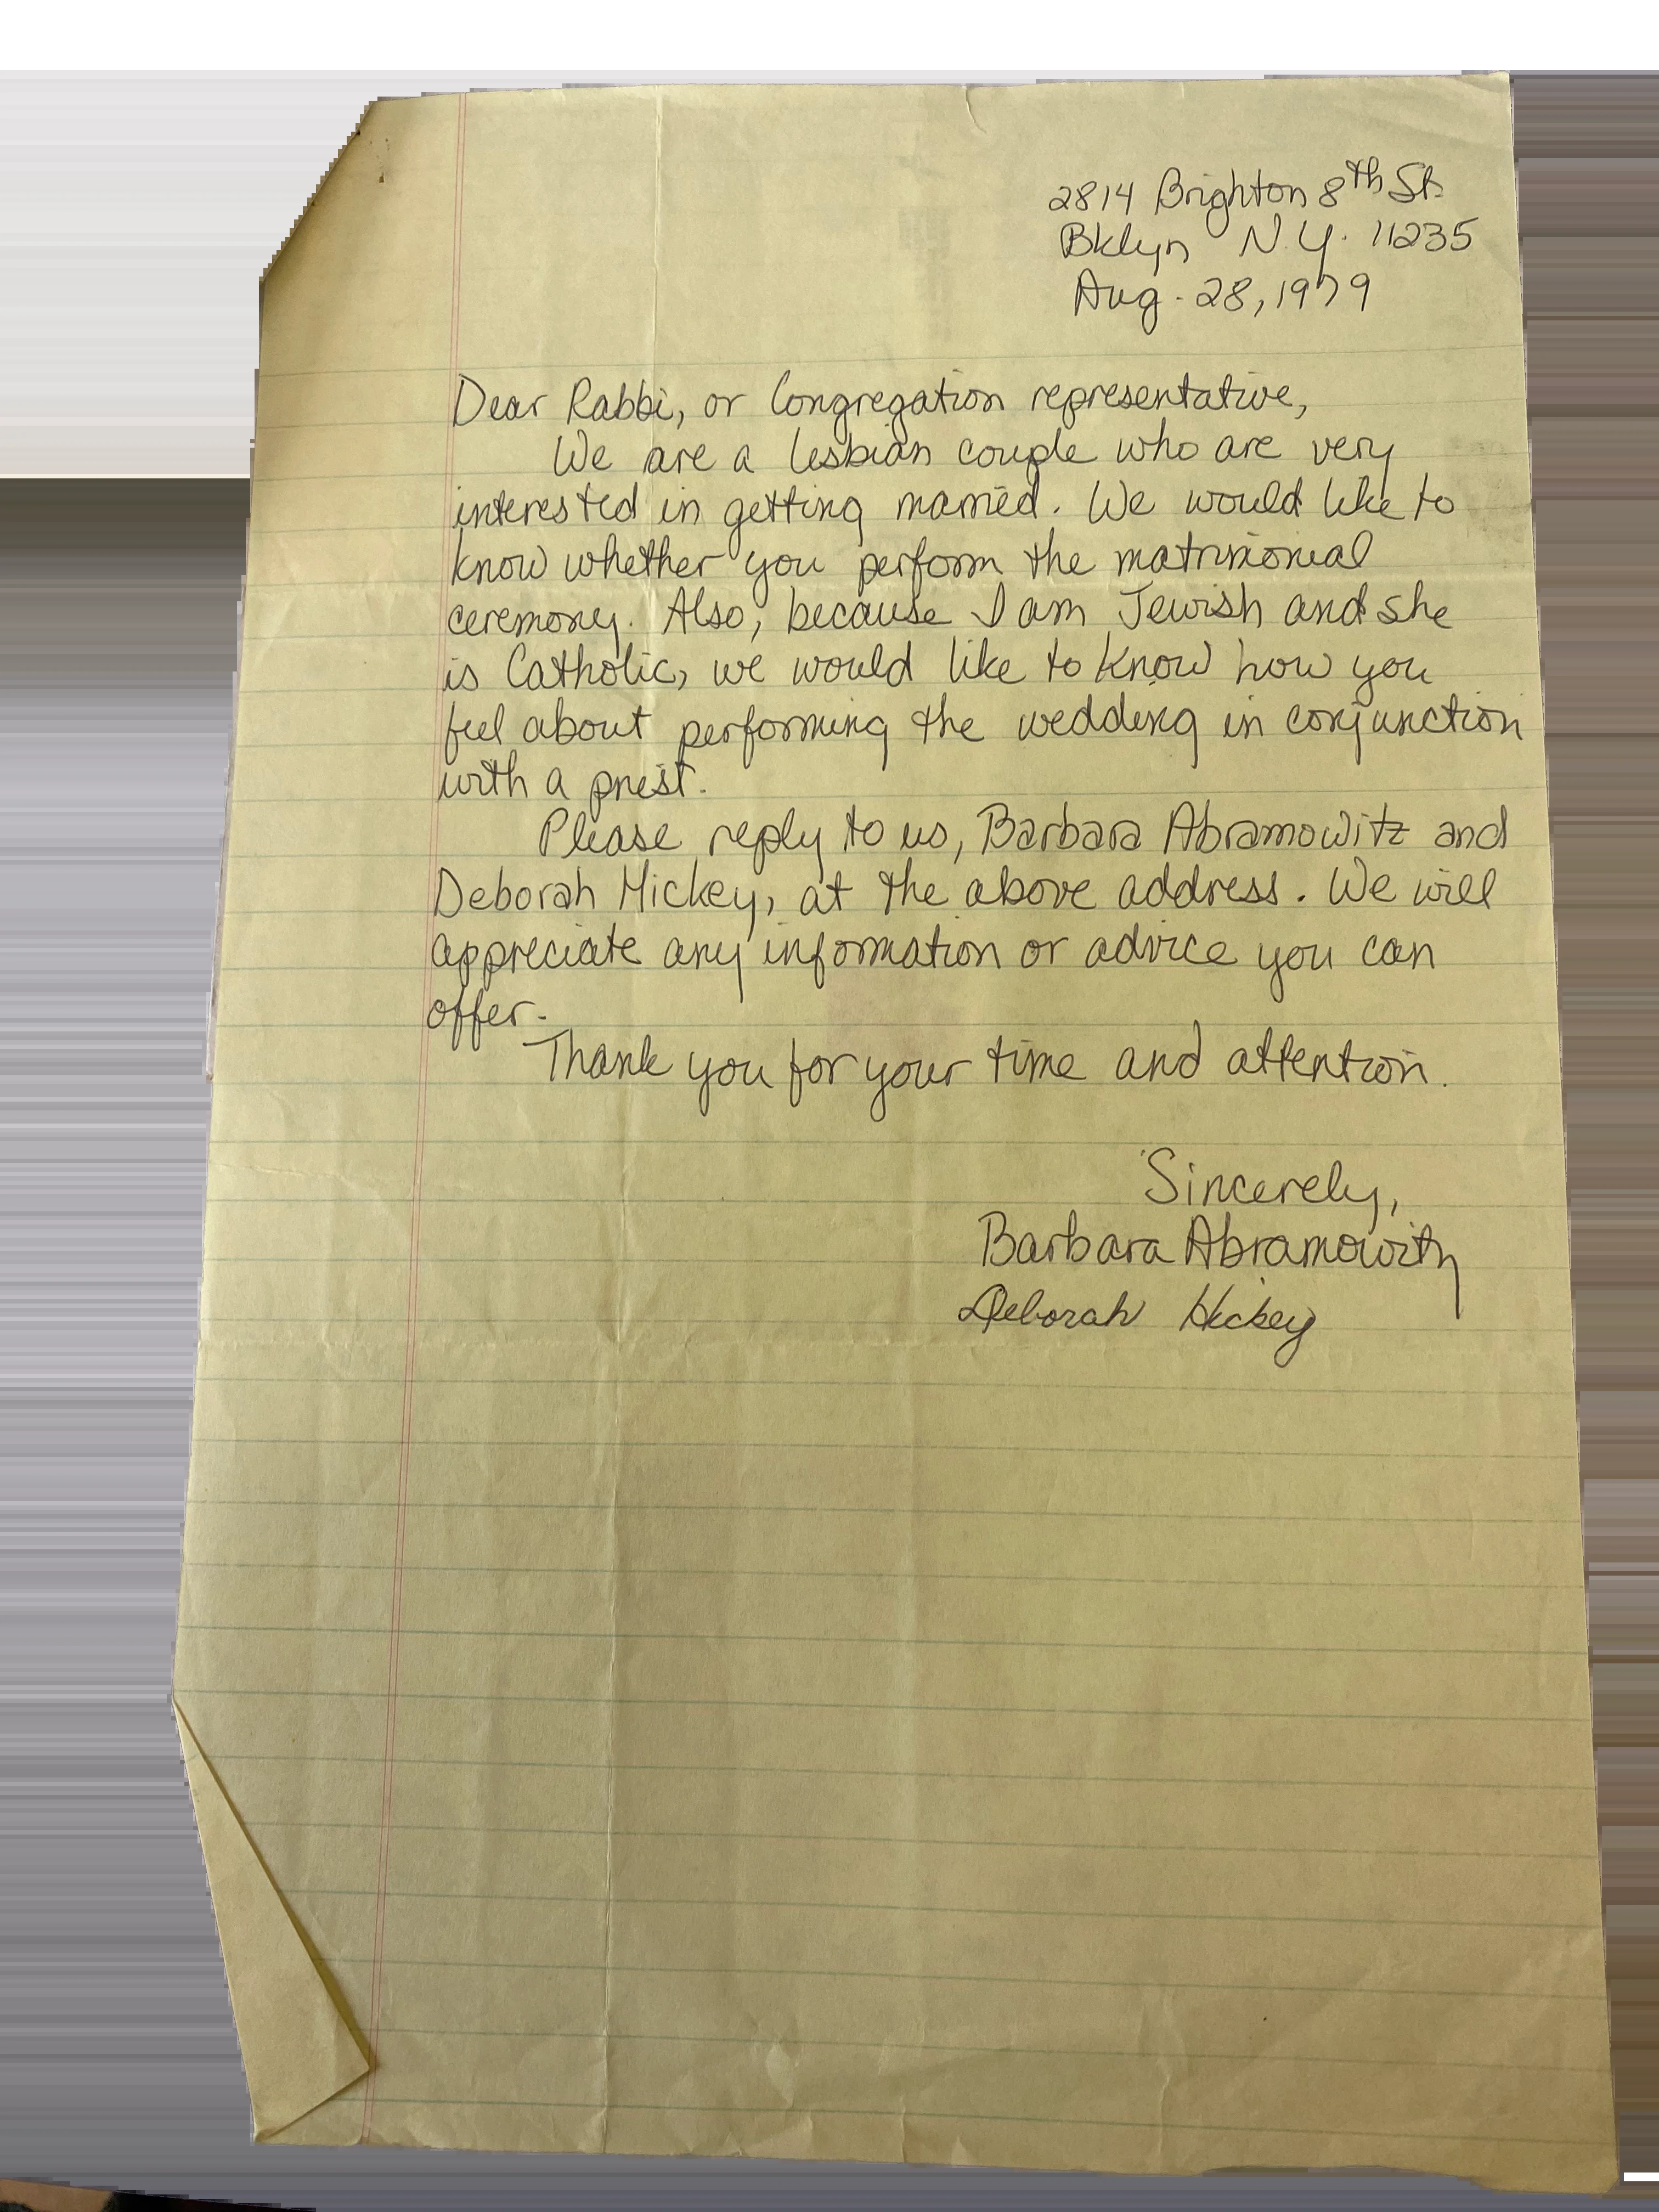 2814 Brighton 8th St.
Bklyn N.Y. 11235
Aug. 28, 1979
Dear Rabbi, or Congregation representative,
We are a lesbian couple who are very
interested in getting married. We would like to
know whether you perform the matrimonial
ceremony. Also, because I am Jewish and she
is Catholic, we would like to know how you
feel about performing the wedding in conjunction
with a priest.
Please reply to us, Barbara Abramowitz and
Deborah Hickey, at the above address. We will
appreciate any information or advice you can
offer.
Thank you for your time and attention.
Sincerely,
Barbara Abramowitz
Deborah Hickey